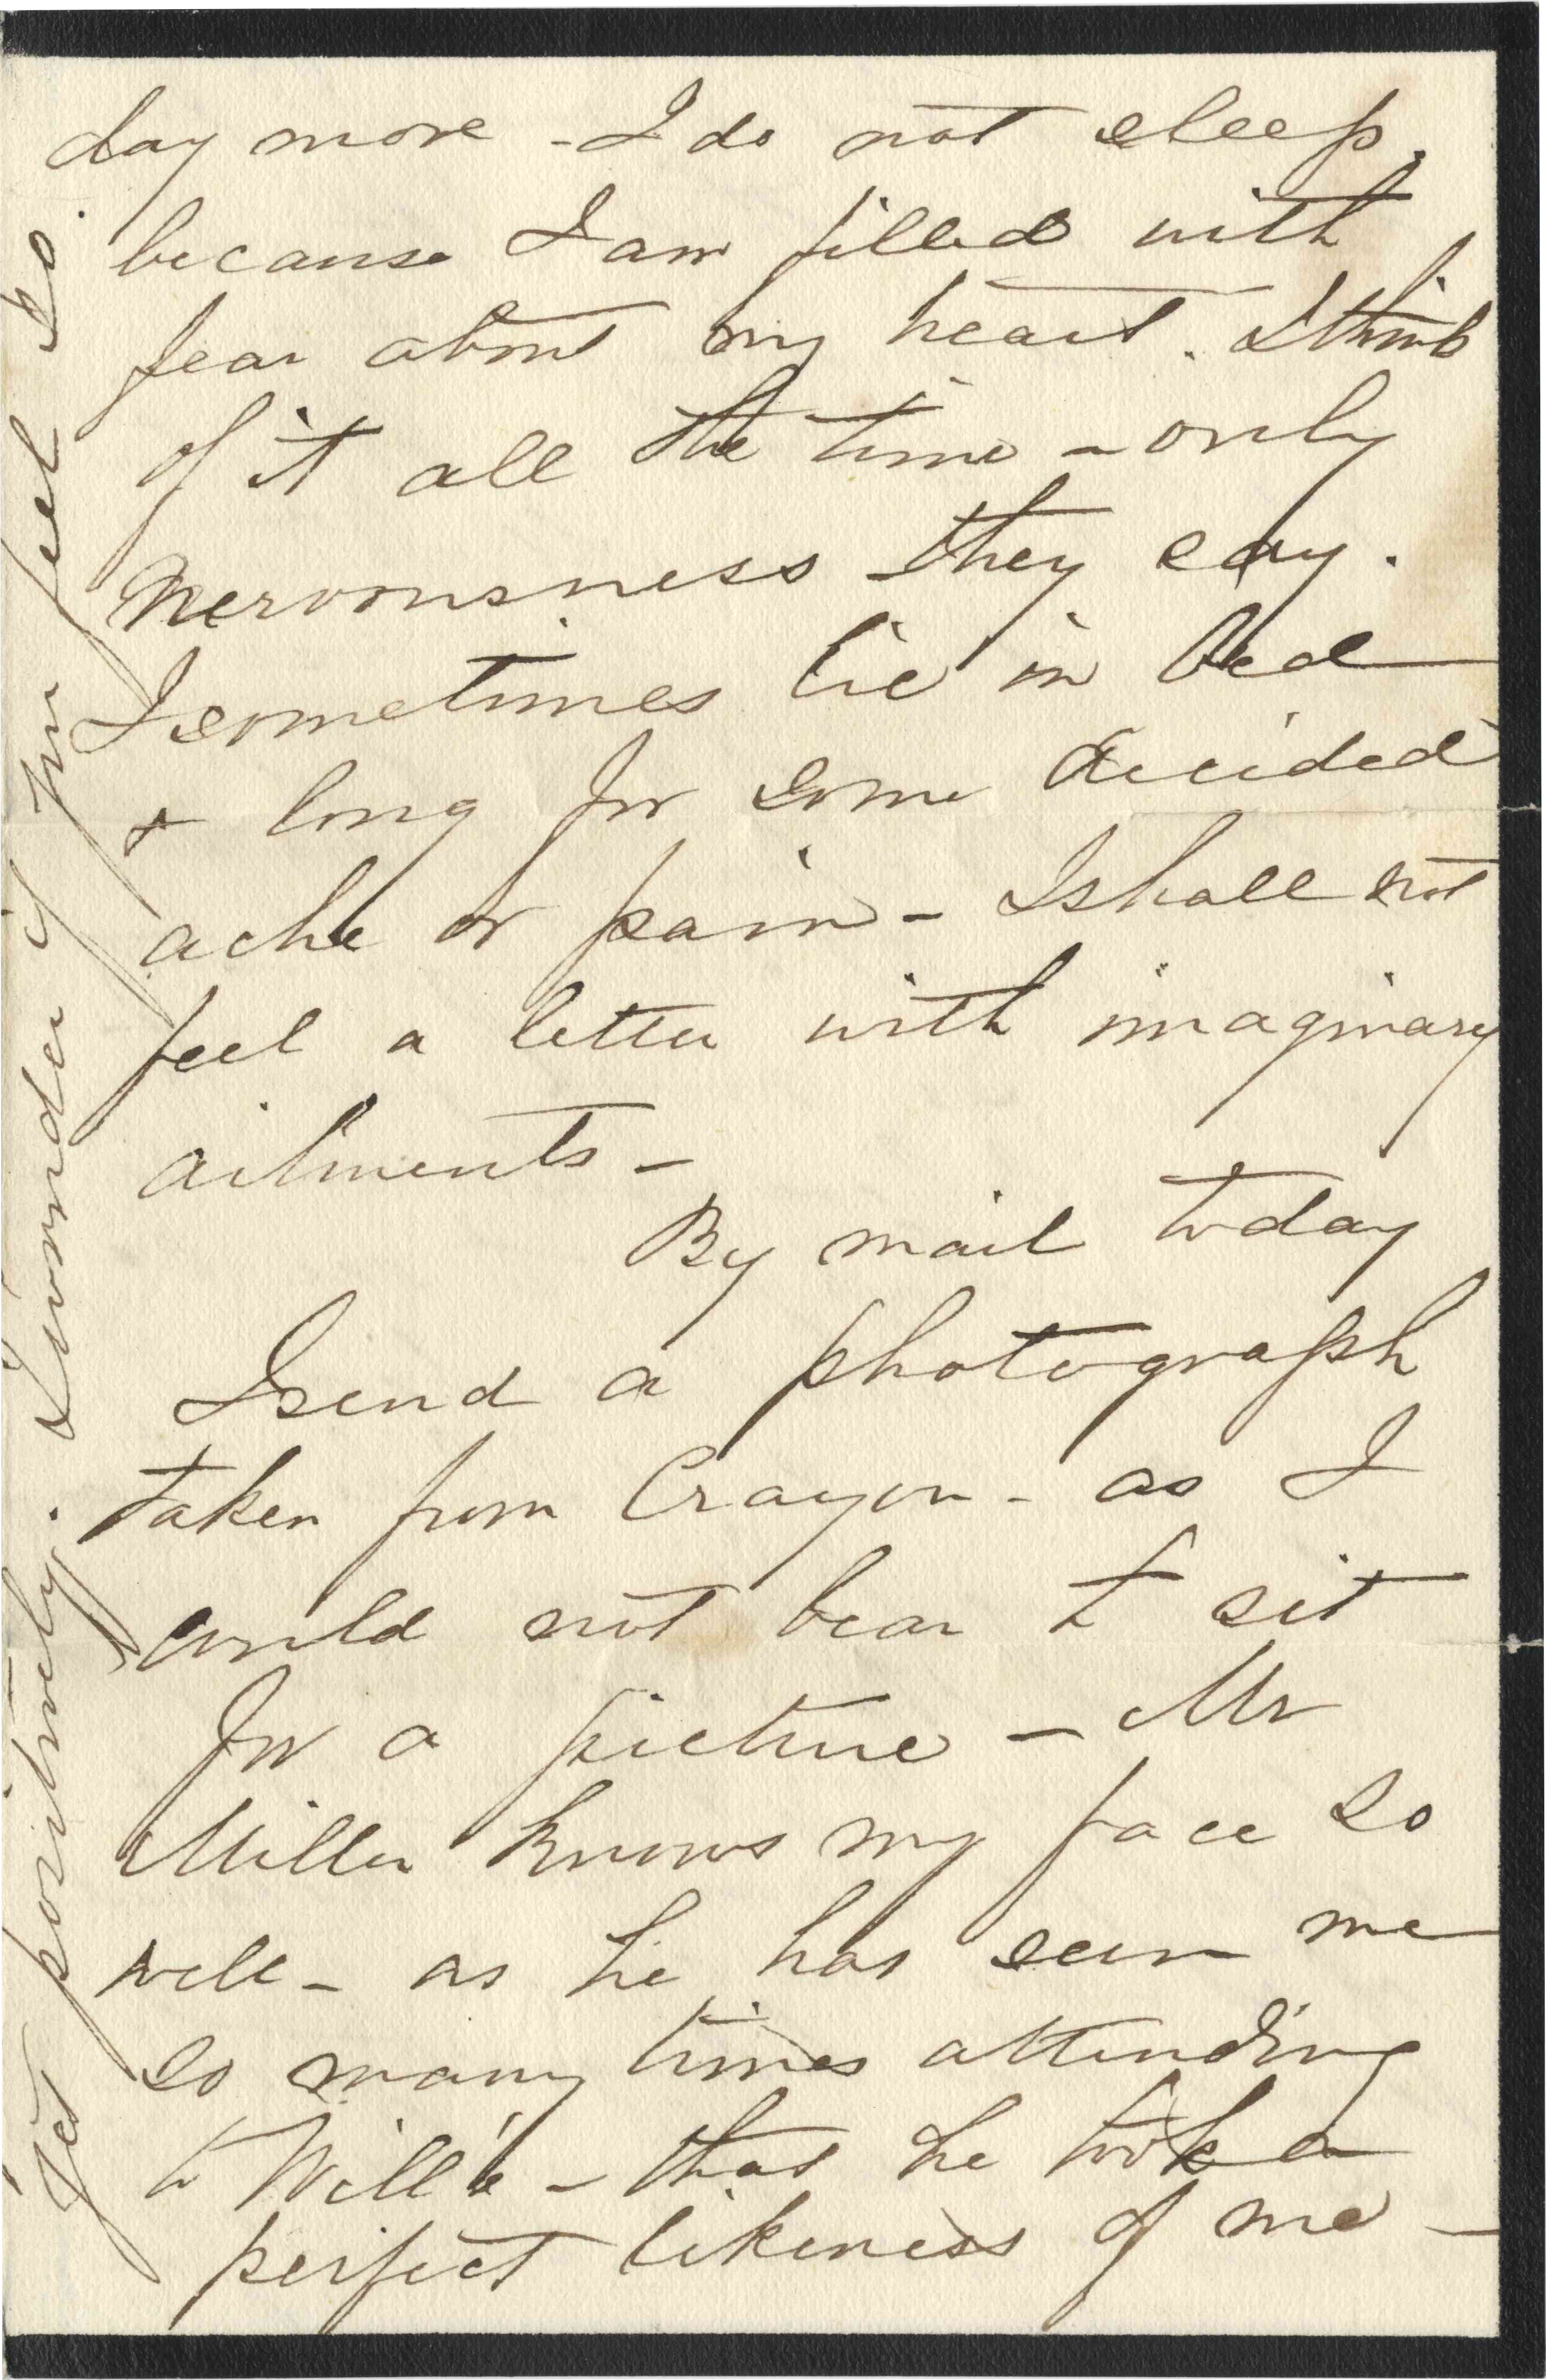 day more - I do not sleep.
because I am filled with
fear about my heart. I think
of it all the time - only
nervousness they say.
I sometimes lie in bed
& long for some decided
ache or pain - I shall not
feel a letter with imaginary
ailments -
By mail today
I send a photograph
taken from Crayon - as I
could not bear to sit
for a picture - Mr
Miller knows my face so
well - as he has seen me
so many times attending
to Willie - that he took a
perfect likeness of me -
Yet positively. I wonder if you feel so.